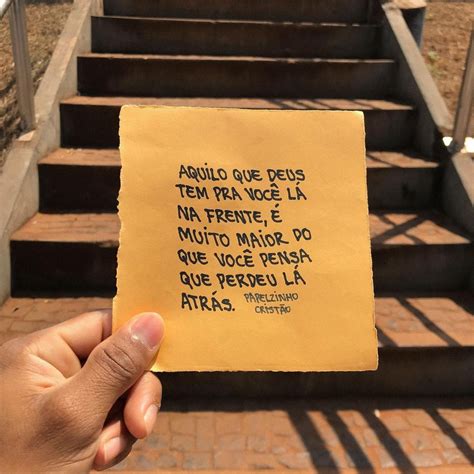 AQUILO QUE DEUS
TEM PRA VOCÊ LÁ
NA FRENTE, É
MUITO MAIOR DO
QUE VOCÊ PENSA
QUE PERDEU LÁ
ATRÁS.
PAPELZINHO
CRISTÃO